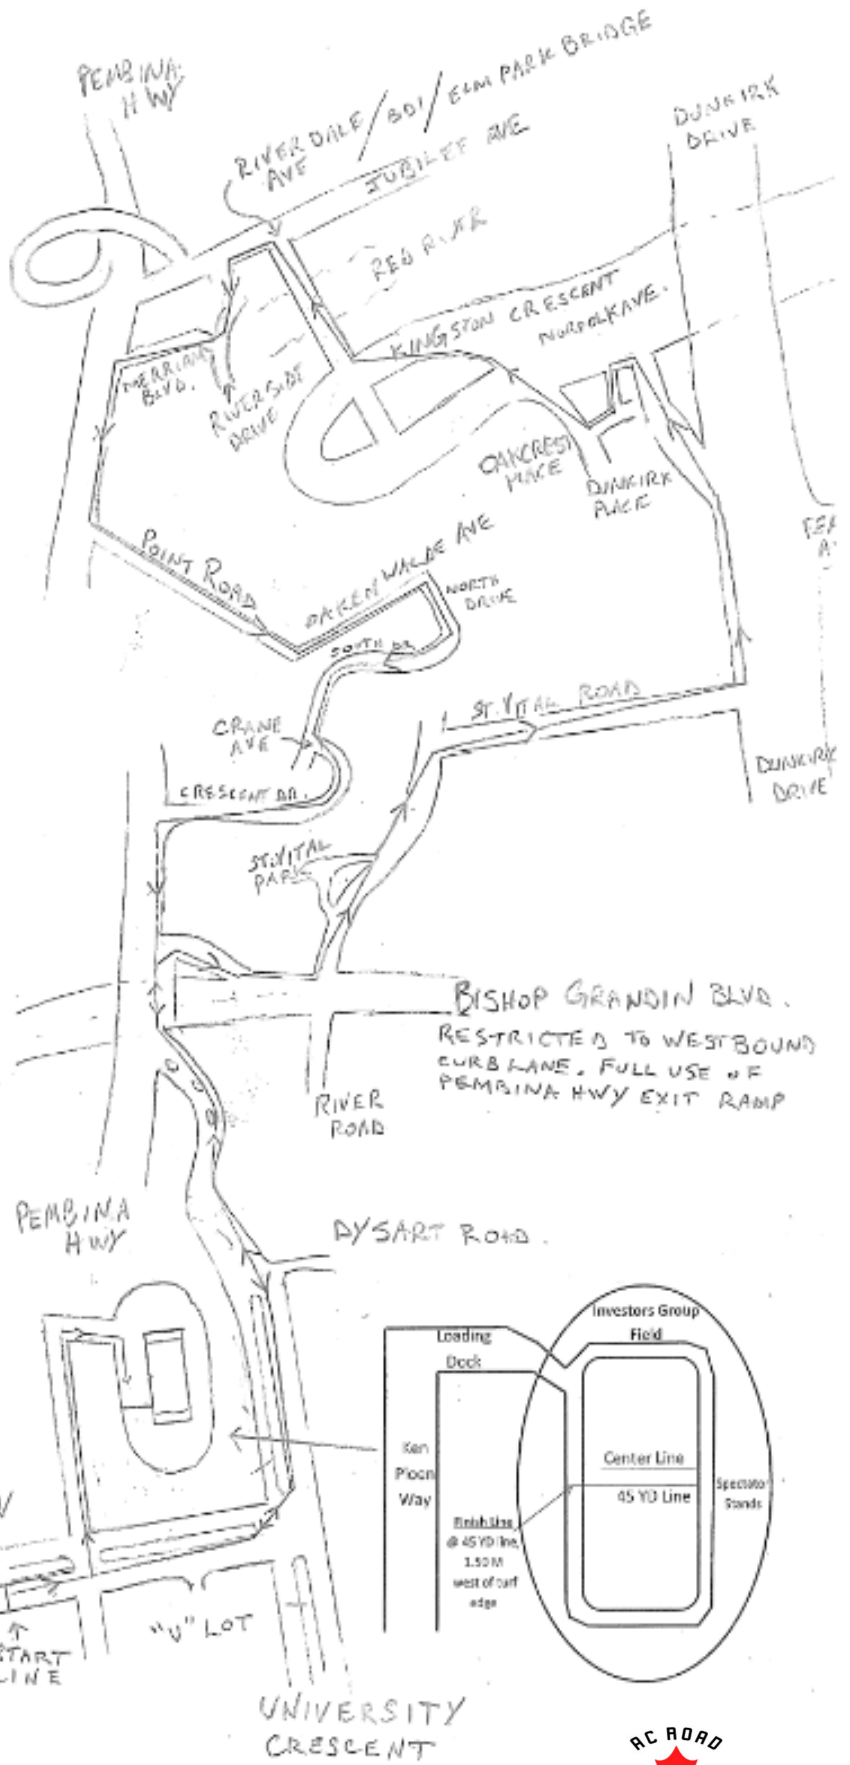 PEMBINA
HWY
RIVERDALE / BDI / ELM PARK BRIDGE
AVE
JUBILEE AVE
DUNKIRK
DRIVE
RED RIVER
KINGSTON CRESCENT
NORFOLK AVE.
MERRIAM
BLVD.
RIVERSIDE
DRIVE
OAKCREST
PLACE
DUNKIRK
PLACE
POINT ROAD
OAKENWALDE AVE
NORTH
DRIVE
SOUTH DR
CRANE
AVE
ST. VITAL ROAD
CRESCENT DR.
DUNKIRK
DRIVE
ST. VITAL
PARK
BISHOP GRANDIN BLVD.
RESTRICTED TO WESTBOUND
CURB LANE. FULL USE OF
PEMBINA HWY EXIT RAMP
RIVER
ROAD
PEMBINA
HWY
DYSART ROAD.
Investors Group
Field
Loading
Dock
Ken
Ploen
Way
Center Line
45 YD Line
Spectator
Stands
Finish Line
@ 45 YD line,
1.50 M
west of turf
edge
"U" LOT
START
LINE
UNIVERSITY
CRESCENT
RC ROAD